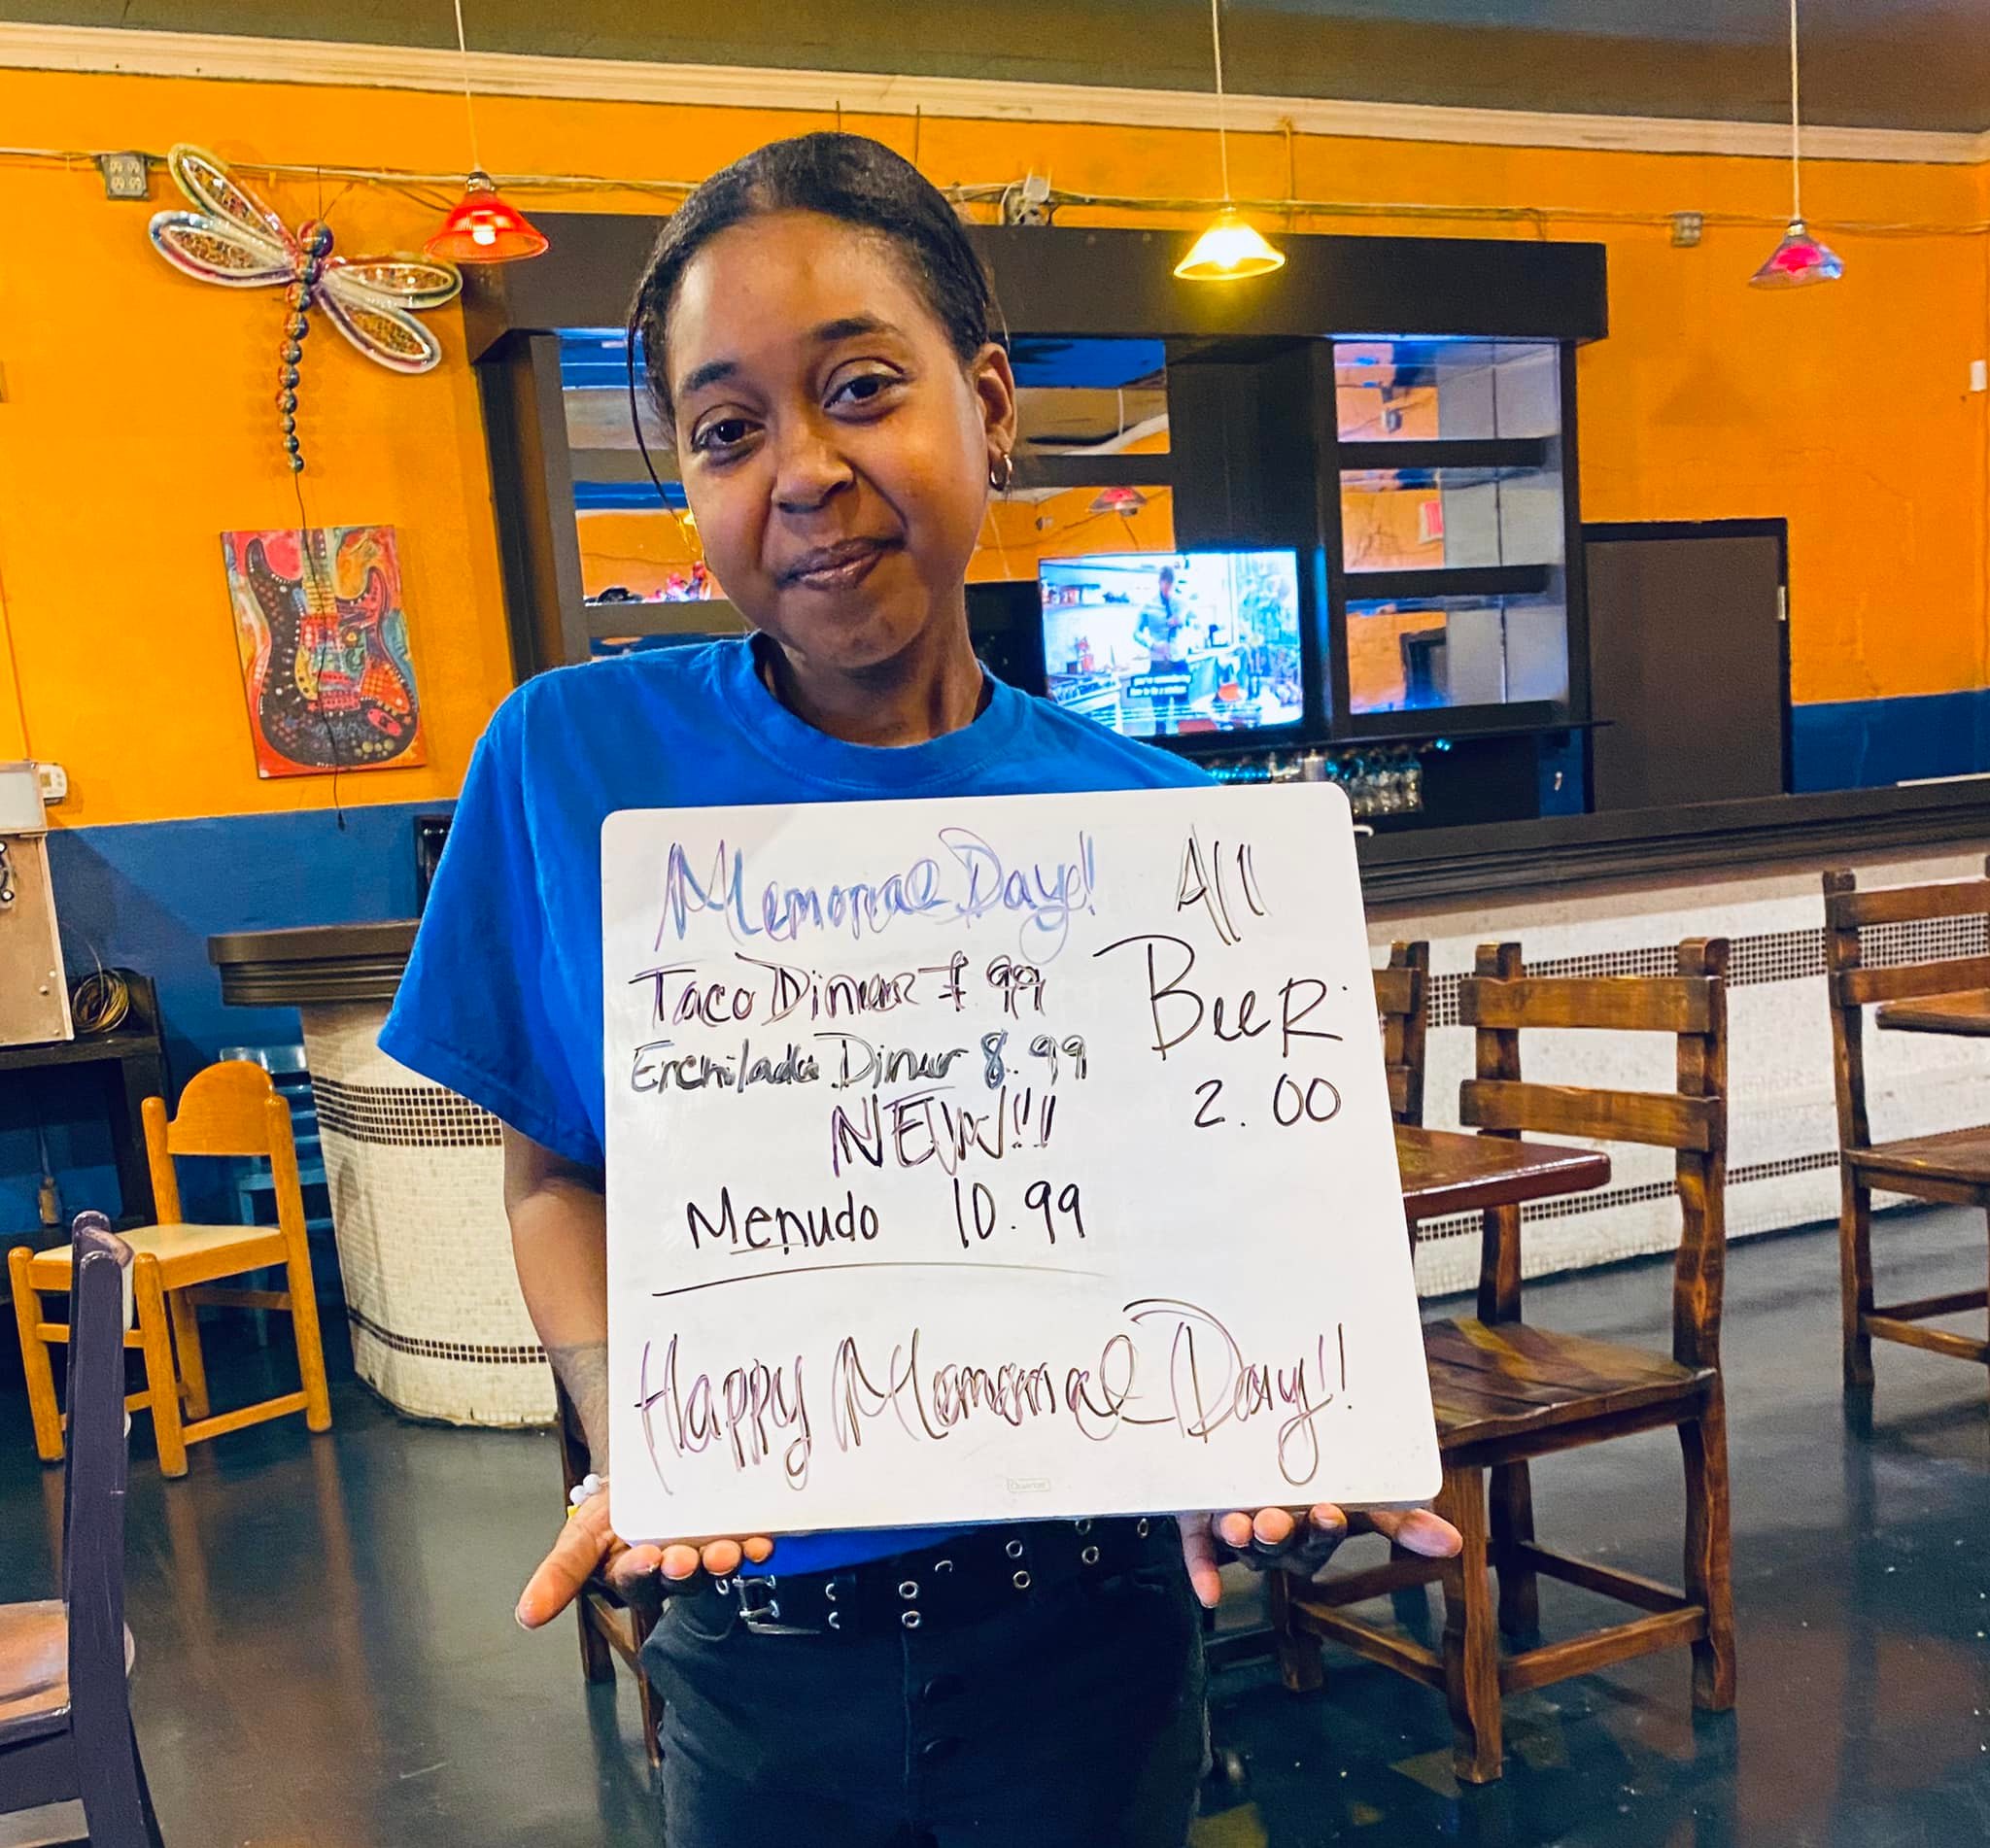 Memorial Day!
Taco Dinner 7.99
Enchilada Dinner 8.99
NEW!!!
Menudo 10.99
All
Beer
2.00
Happy Memorial Day!!
Quartet